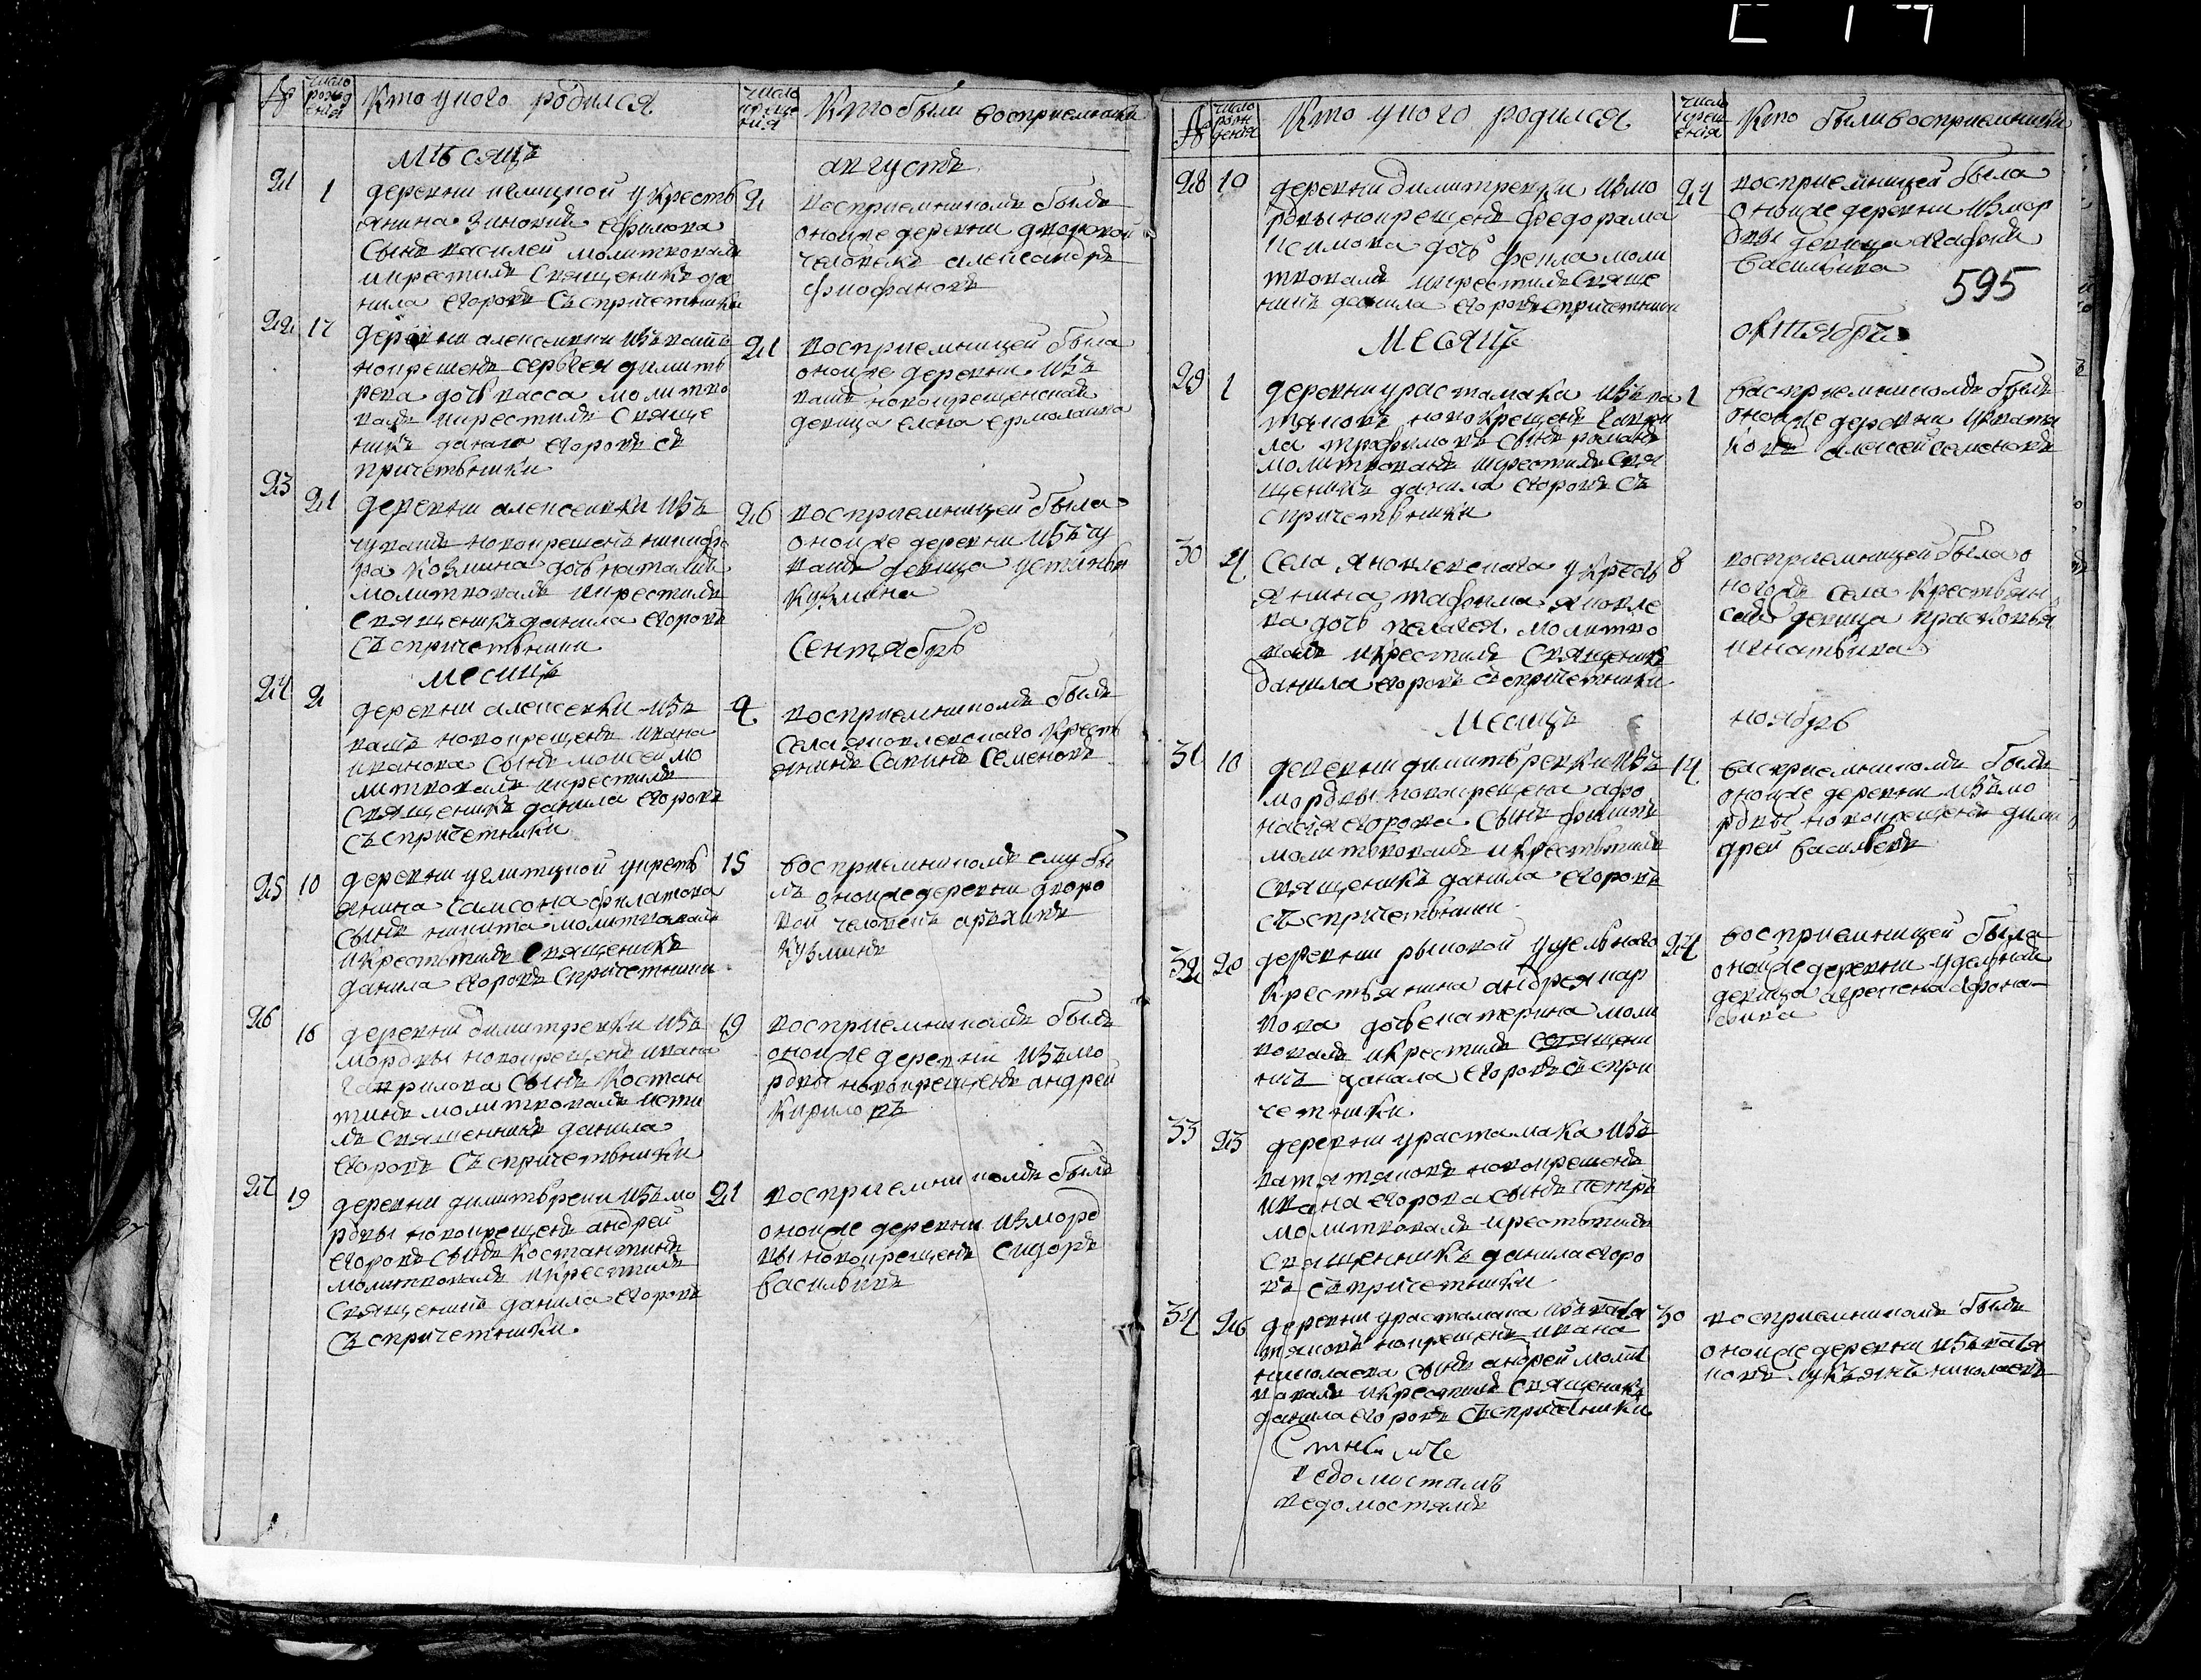 №
число рождения
Кто у кого родился
число крещения
Кто были восприемники
мѣсяцъ
августъ
21
1
деревни углицкой у крестья
янина зиновия ефимова
сынъ василей молитвовалъ
и крестилъ священикъ да
нила егоровъ съ спричетники
2
восприемникомъ былъ
оной же деревни дворовой
человекъ александръ
фиофановъ
22
17
деревни алексеевки изъ ваш
новкрещенъ сергея димить
рева дочь васса молитво
валъ и крестилъ свяще
никъ данило егоровъ съ
причетьники
21
восприемницей была
оной же деревни изъ
вашъ новокрещенская
девица елена ермолаива
23
21
деревни алексеивки изъ
чувашъ новокрещенъ никифо
ра козмина дочь наталия
молитвовалъ и крестилъ
священикъ данила егоровъ
съ спричетьники
26
восприемницей была
оной же деревни изъ чу
вашъ девица устинья
кузмина
месицъ
сентябрь
24
2
деревни алексевки изъ
вашъ новокрещенъ ивана
иванова сынъ моисей мо
литвовалъ и крестилъ
священикъ данила егоровъ
съ спричетники
4
восприемникомъ былъ
села яковлевскаго кресть
янинъ савинъ семеновъ
25
10
деревни углитцкой у кресть
янина самсона филатова
сынъ никита молитвовалъ
и крестьтилъ священикъ
данила егоровъ спричетники
15
восприемникомъ ему бы
лъ оной же деревни дворо
вой человекъ архипъ
кузминъ
26
16
деревни димитревки изъ
мордвы новокрещенъ ивана
гаврилова сынъ костан
тинъ молитвовалъ и сти
лъ священникъ данила
егоровъ съ спричетьники
19
восприемникомъ былъ
оной же деревни изъ мо
рдвы новокрещенъ андрей
кирило въ
27
19
деревни димитьреки изъ мо
рдвы новокрещенъ андрей
егоровъ сынъ костантинъ
молитвовалъ и крестилъ
священикъ данила егоровъ
съ спричетники
21
восприемникомъ былъ
оной же деревни изморд
вы новокрещенъ сидоръ
васильивъ
№
число рождения
Кто у кого родился
число крещения
Кто были восприемники
28
19
деревни димитревки измо
рдвы новкрещенъ федора ма
ксимова дочь фекла моли
твовалъ и крестилъ свяще
никъ данила егоровъ спричетники
24
восприемницей была
оной же деревни измор
двы девица агафия
васильива
595
месяцъ
октябрь
29
1
деревни урастамака изъ ва
тяковъ новокрещенъ гаври
ла трофимовъ сынъ романъ
молитвовалъ и крестилъ свя
щеникъ данила егоровъ съ
спричетьники
1
васприемникомъ былъ
оной же деревни из ватя
ковъ алексей семеновъ
30
4
села яковлевскага у кресть
янина тафима яковле
ва дочь пелагея молитво
валъ и крестилъ священикъ
данила егоровъ съ спричетники
8
восприемницей была о
ного же села крестьян
ская девица прасковья
игнатьива
месицъ
ноябрь
31
10
деревни димитьревки изъ
мордвы новокрещена афо
насья егорова сынъ филипъ
молитьвовалъ и крестьтилъ
священикъ данила егоровъ
съ спричетьники
14
васприемникомъ былъ
оной же деревни изъ мо
рдвы новокрещенъ дими
дрей васильевъ
32
20
деревни рыковой удельного
крестьянина андрея кар
пова дочь екатерина моли
вовалъ и крестилъ священи
икъ данала егоровъ съ спри
четники
24
восприемницей была
оной же деревни уделная
девица агрепена афона
сьива
33
23
деревни урастамака изъ
ватятяковъ новокрещенъ
ивана егорова сынъ петръ
молитвовалъ и крестьтилъ
священникъ данила егоро
въ съ причетники
34
26
деревни урастамака изъ ватя
тяковъ новкрещенъ ивана
николаева сынъ андрей молит
вовалъ и крестилъ священикъ
данила егоровъ съ спричетники
30
восприемникомъ былъ
оной же деревни изъ ватя
ковъ лукьянъ николаевъ
ведомостямъ
ведомостямъ